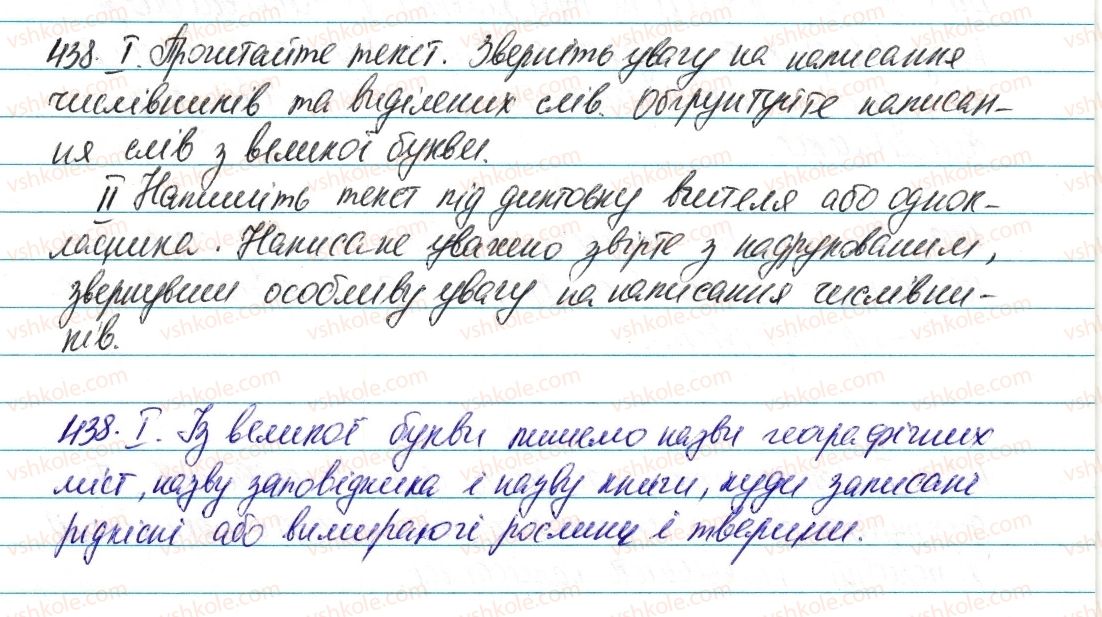 438. I. Прочитайте текст. Зверніть увагу на написання
числівників та виділених слів. Обґрунтуйте написан-
ня слів з великої букви.
II Напишіть текст під диктовку вчителя або однок-
ласника. Написане уважно звірте з надрукованим,
звернувши особливу увагу на написання числівни-
ків.
438. I. Із великої букви пишемо назви географічних
міст, назву заповідника і назву книги, куди записані
рідкісні або вимираючі рослини і тварини.